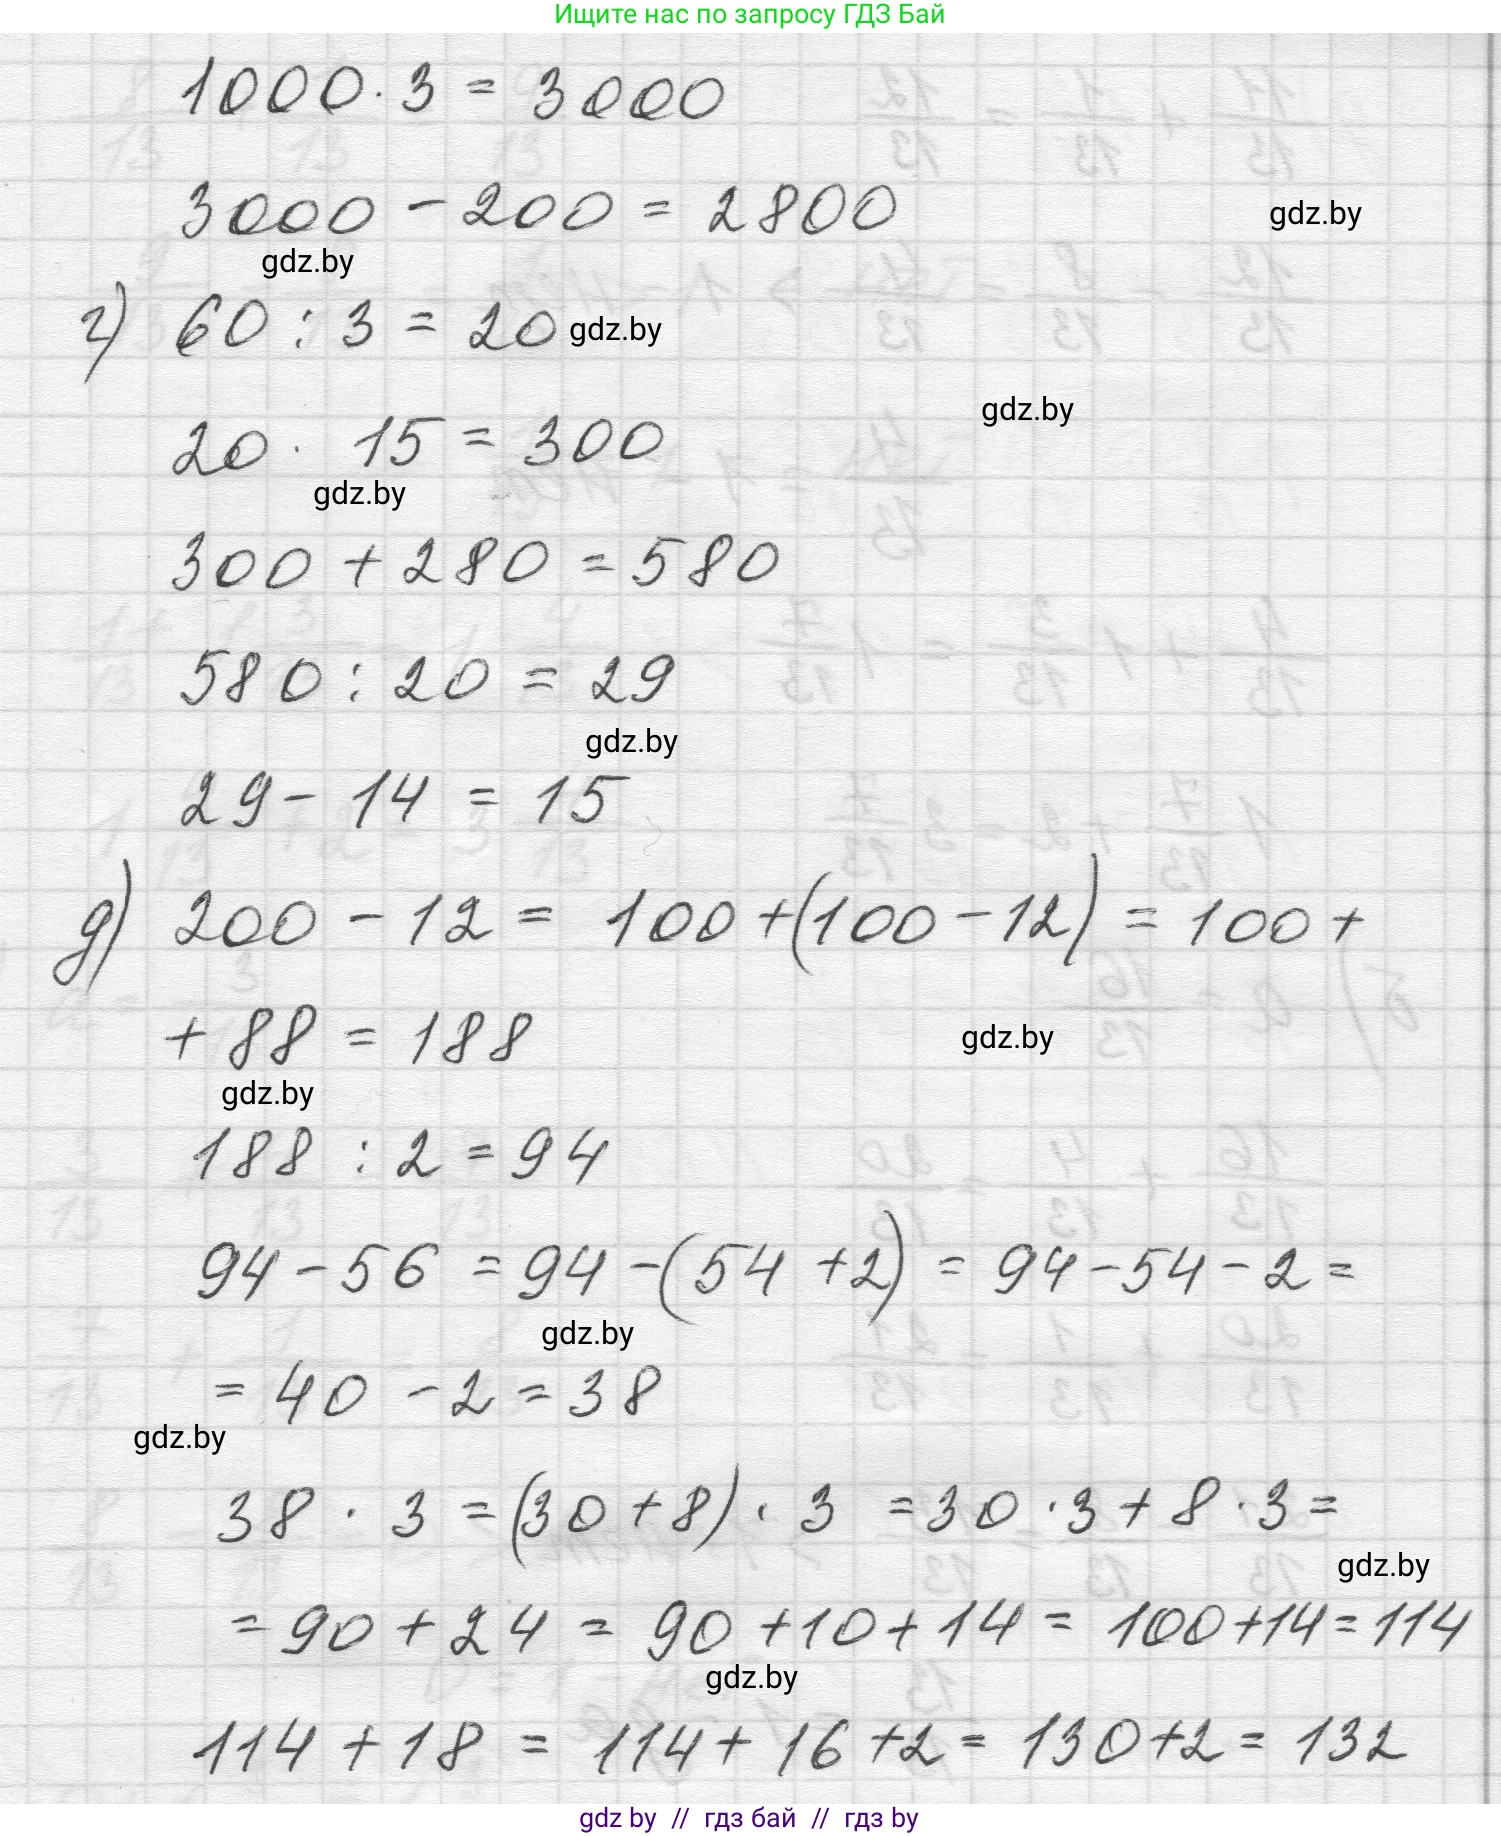 Ищите нас по запросу ГДЗ Бай
1000 · 3 = 3000
3000 - 200 = 2800
gdz.by
gdz.by
г) 60 : 3 = 20
gdz.by
gdz.by
20 · 15 = 300
gdz.by
300 + 280 = 580
580 : 20 = 29
gdz.by
29 - 14 = 15
д) 200 - 12 = 100 + (100 - 12) = 100 +
+ 88 = 188
gdz.by
gdz.by
188 : 2 = 94
94 - 56 = 94 - (54 + 2) = 94 - 54 - 2 =
gdz.by
= 40 - 2 = 38
gdz.by
38 · 3 = (30 + 8) · 3 = 30 · 3 + 8 · 3 =
gdz.by
= 90 + 24 = 90 + 10 + 14 = 100 + 14 = 114
gdz.by
114 + 18 = 114 + 16 + 2 = 130 + 2 = 132
gdz by // гдз бай // гдз by